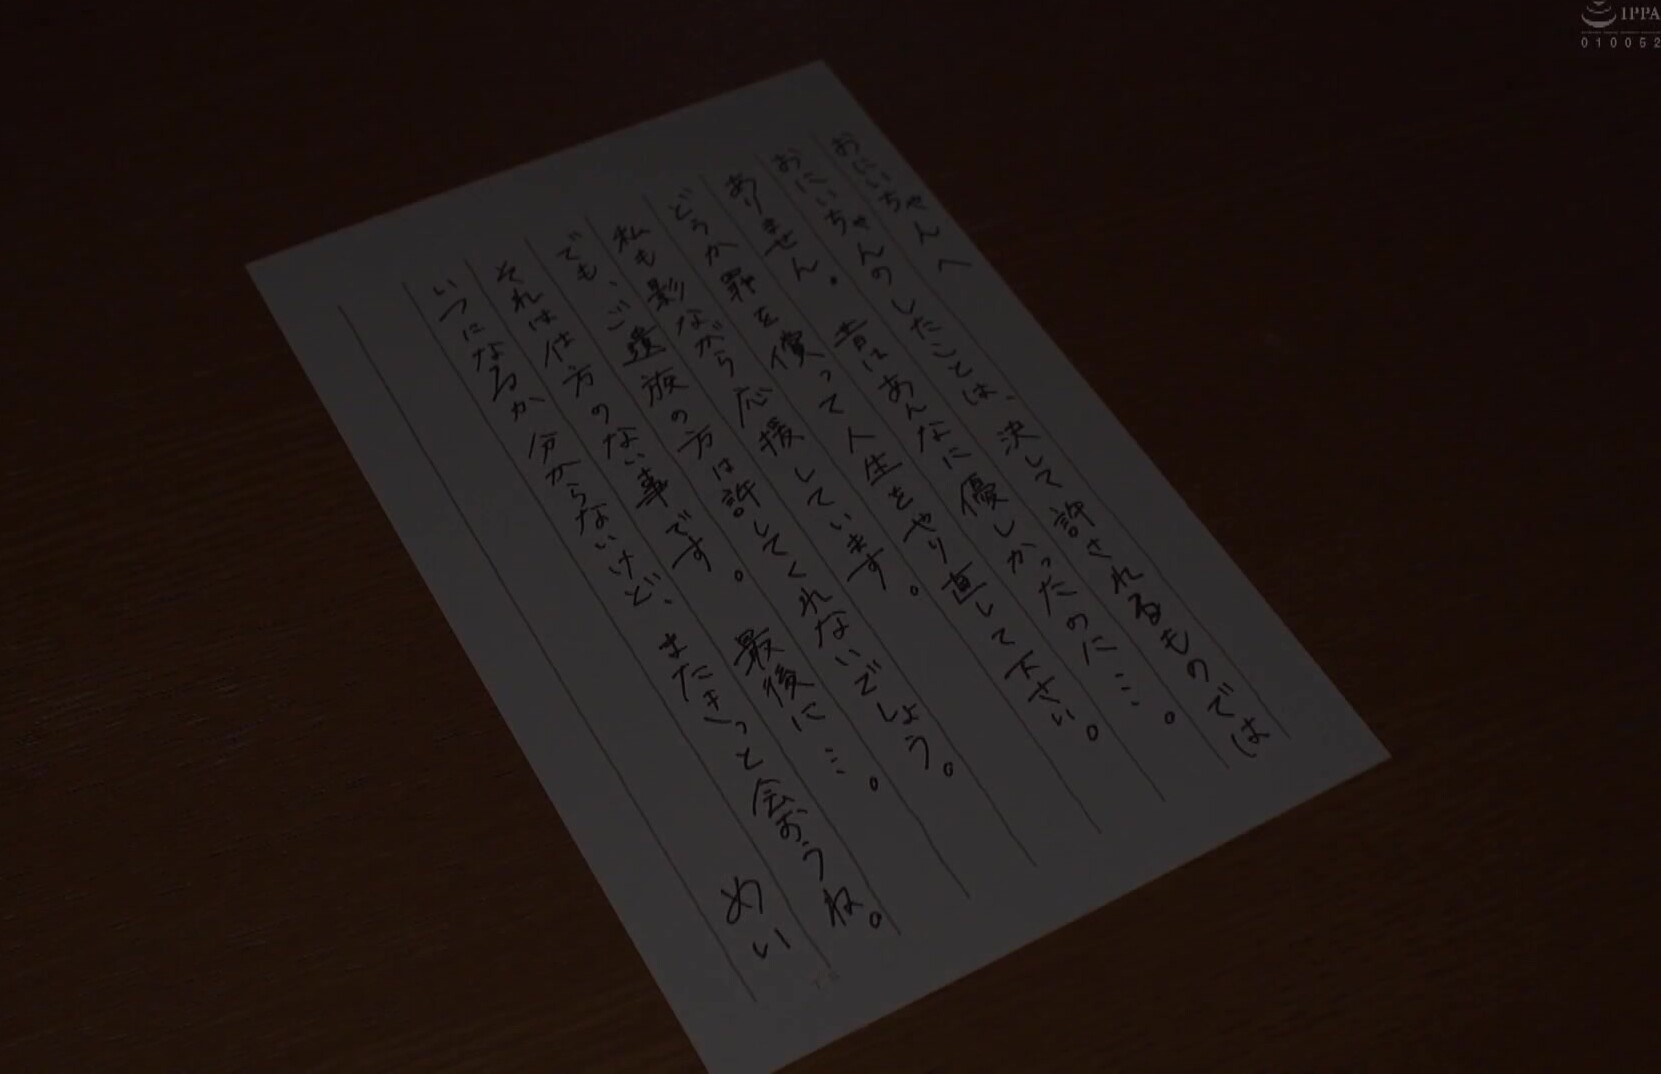 おにいちゃんへ
おにいちゃんのしたことは、決して許されるものでは
ありません。昔はあんなに優しかったのに…。
どうか罪を償って人生をやり直して下さい。
私も影ながら応援しています。
でも、ご遺族の方は許してくれないでしょう。
それは仕方のない事です。最後に…。
いつになるか分からないけど、またきっと会おうね。
めい
IPPA
010052